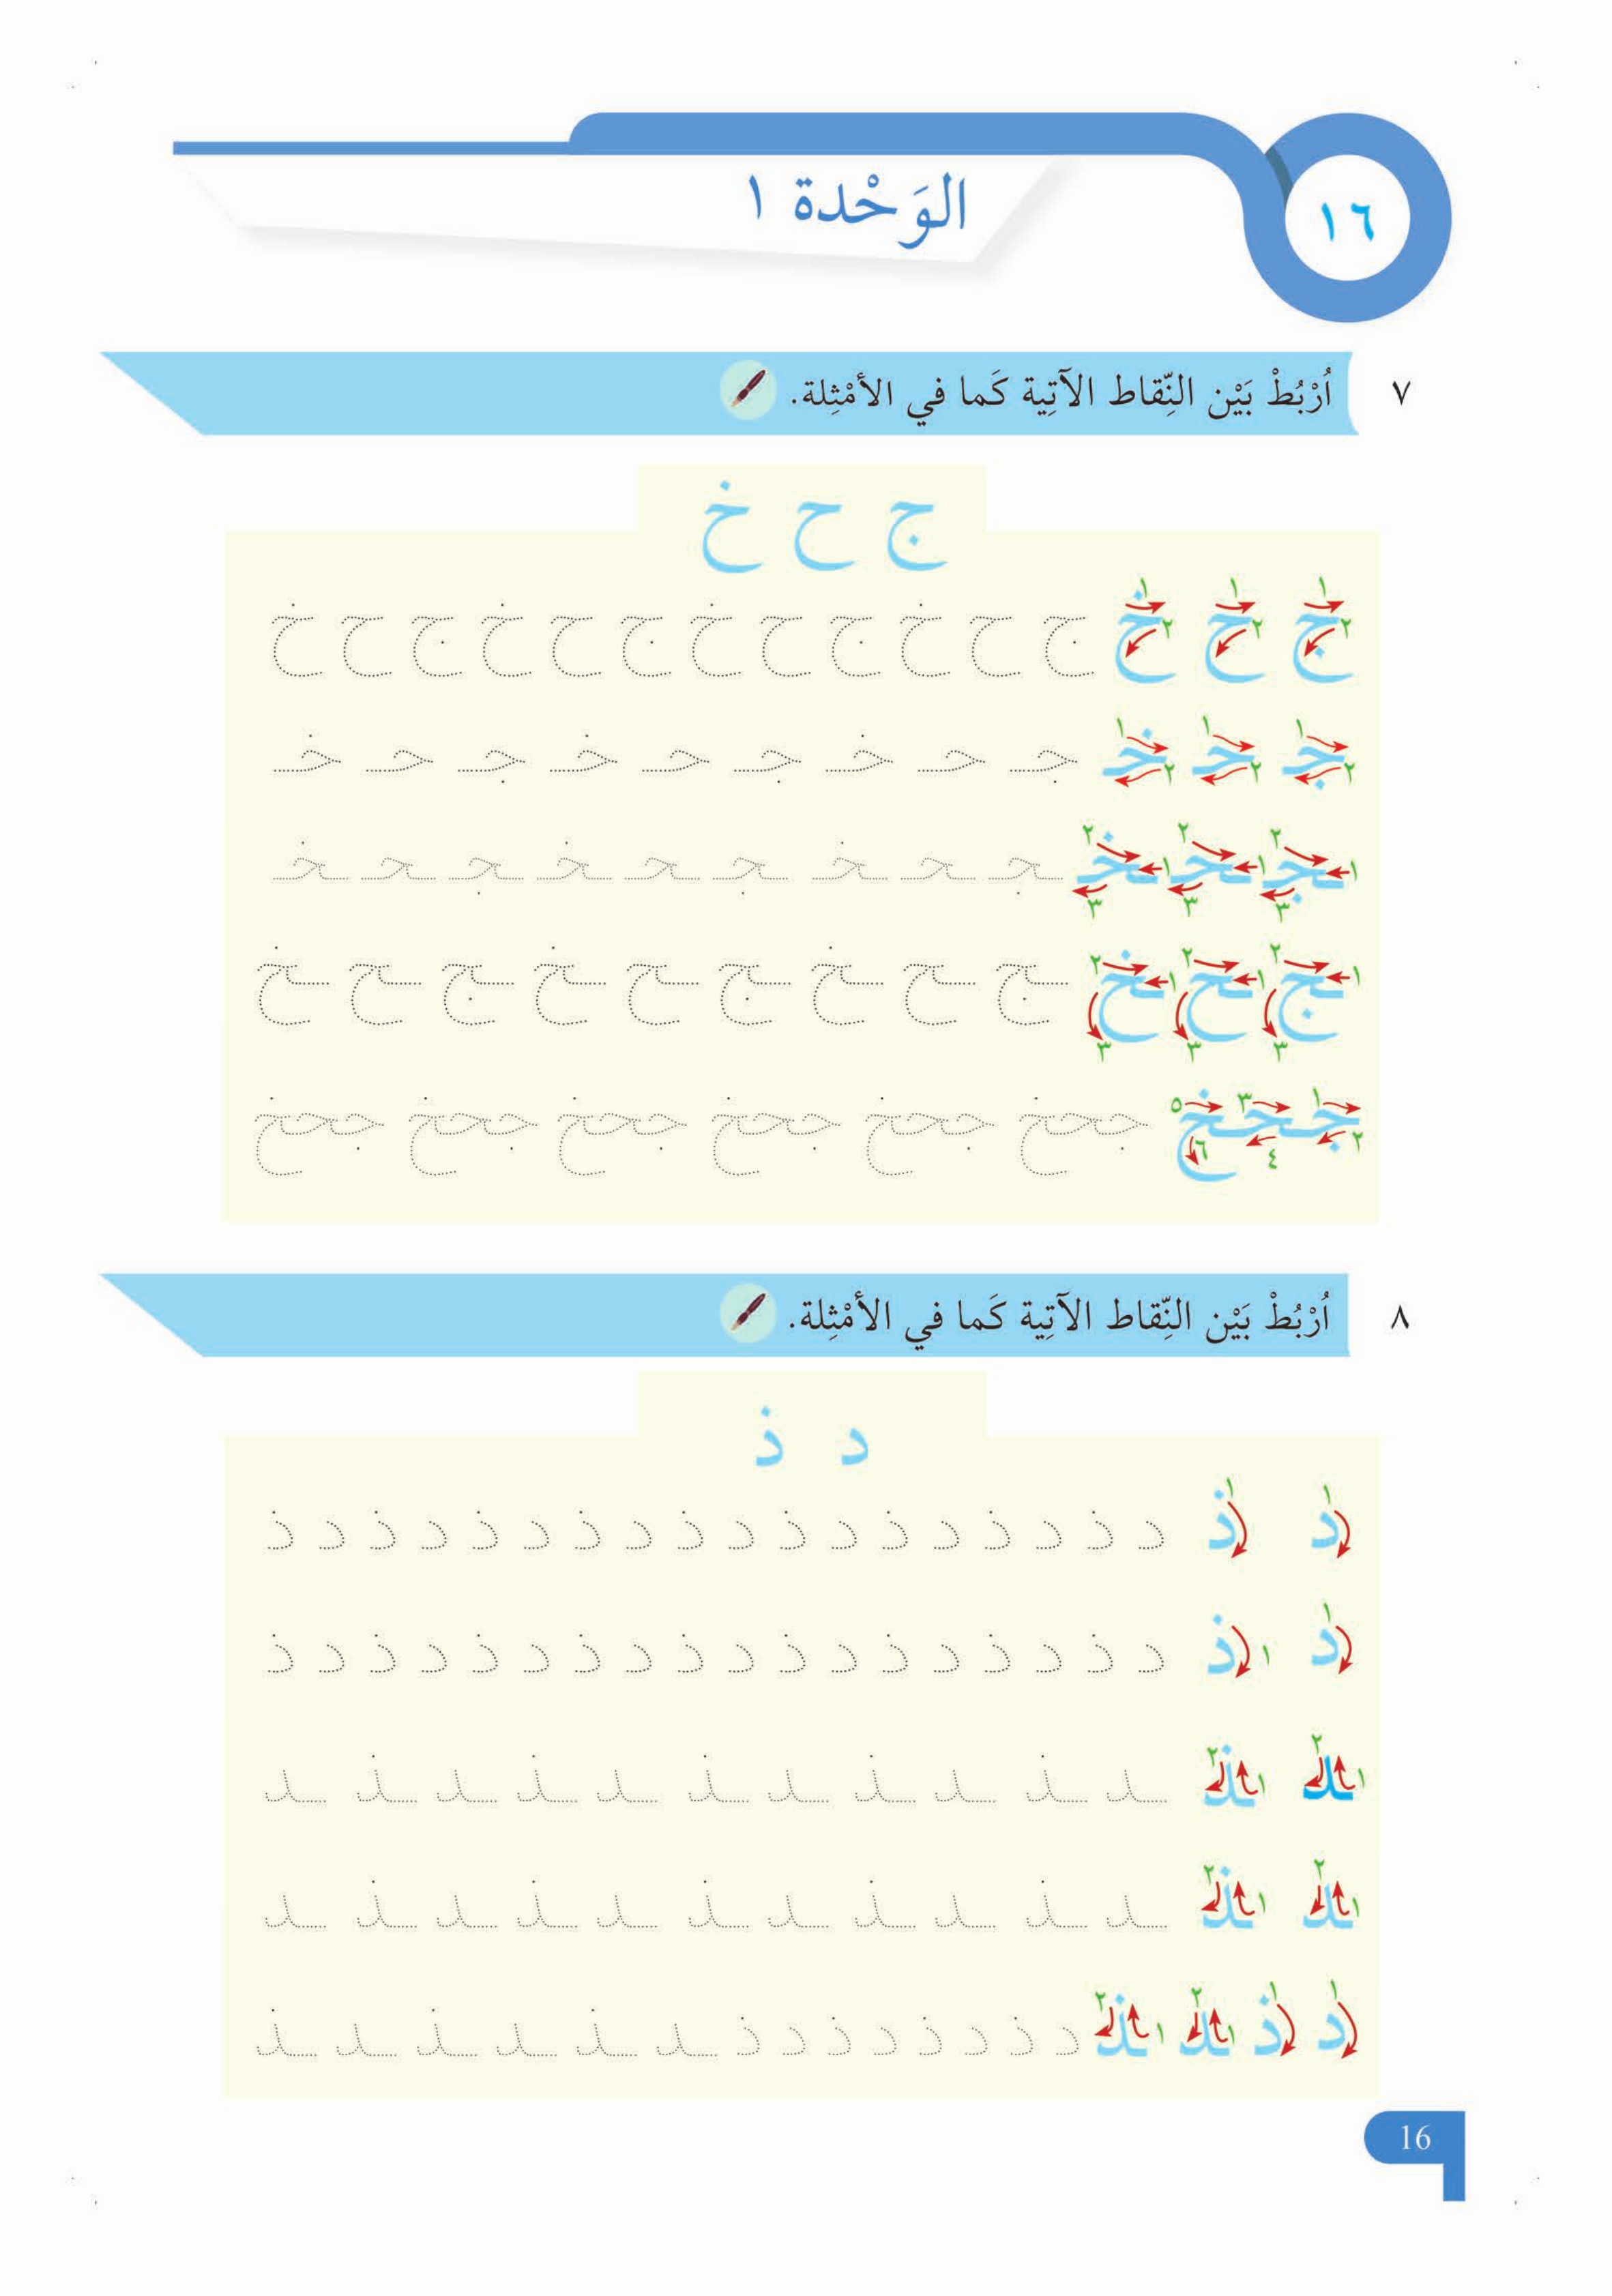 ١٦
الوَحْدة ١
٧ اُرْبُطْ بَيْن النِّقاط الآتِية كَما في الأمْثِلة.
ج ح خ
ج ح خ ج ح خ ج ح خ ج ح خ ج ح خ
جـ حـ خـ جـ حـ خـ جـ حـ خـ جـ حـ خـ
ـجـ ـحـ ـخـ ـجـ ـحـ ـخـ ـجـ ـحـ ـخـ ـجـ ـحـ ـخـ
ـج ـح ـخ ـج ـح ـخ ـج ـح ـخ ـج ـح ـخ
جحخ جحخ جحخ جحخ جحخ جحخ جحخ
٨ اُرْبُطْ بَيْن النِّقاط الآتِية كَما في الأمْثِلة.
د ذ
د ذ د ذ د ذ د ذ د ذ د ذ د ذ د ذ د ذ د ذ
د ذ د ذ د ذ د ذ د ذ د ذ د ذ د ذ د ذ د ذ
ـد ـذ ـد ـذ ـد ـذ ـد ـذ ـد ـذ ـد ـذ ـد
ـد ـذ ـد ـذ ـد ـذ ـد ـذ ـد ـذ ـد ـذ ـد
د ذ ـد ـذ د ذ د ذ د ذ د ذ ـد ـذ ـد ـذ ـد ـذ
16